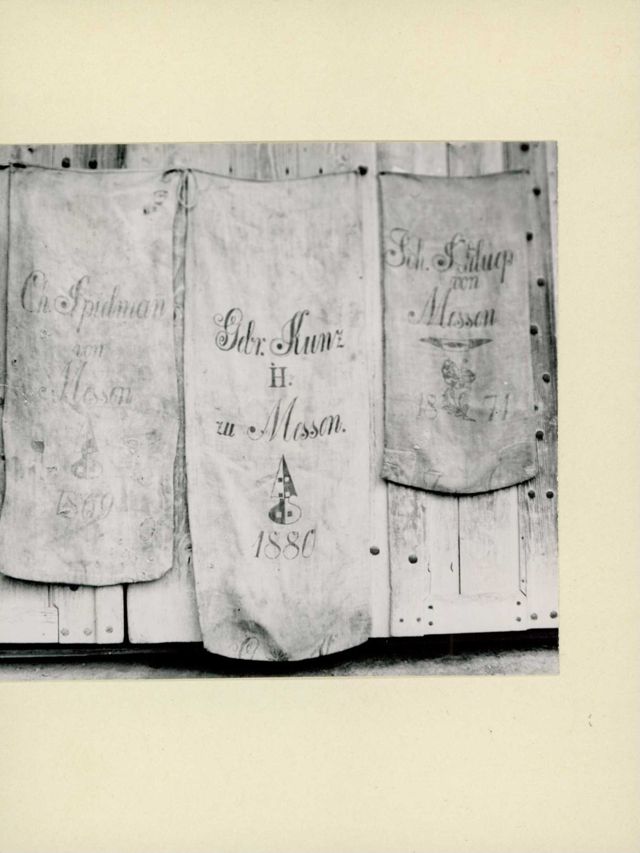 Ch. Spidman
von
Messen
1869
Gebr. Kunz
H.
zu Messen.
1880
Joh. Schluep
von
Messen
1871